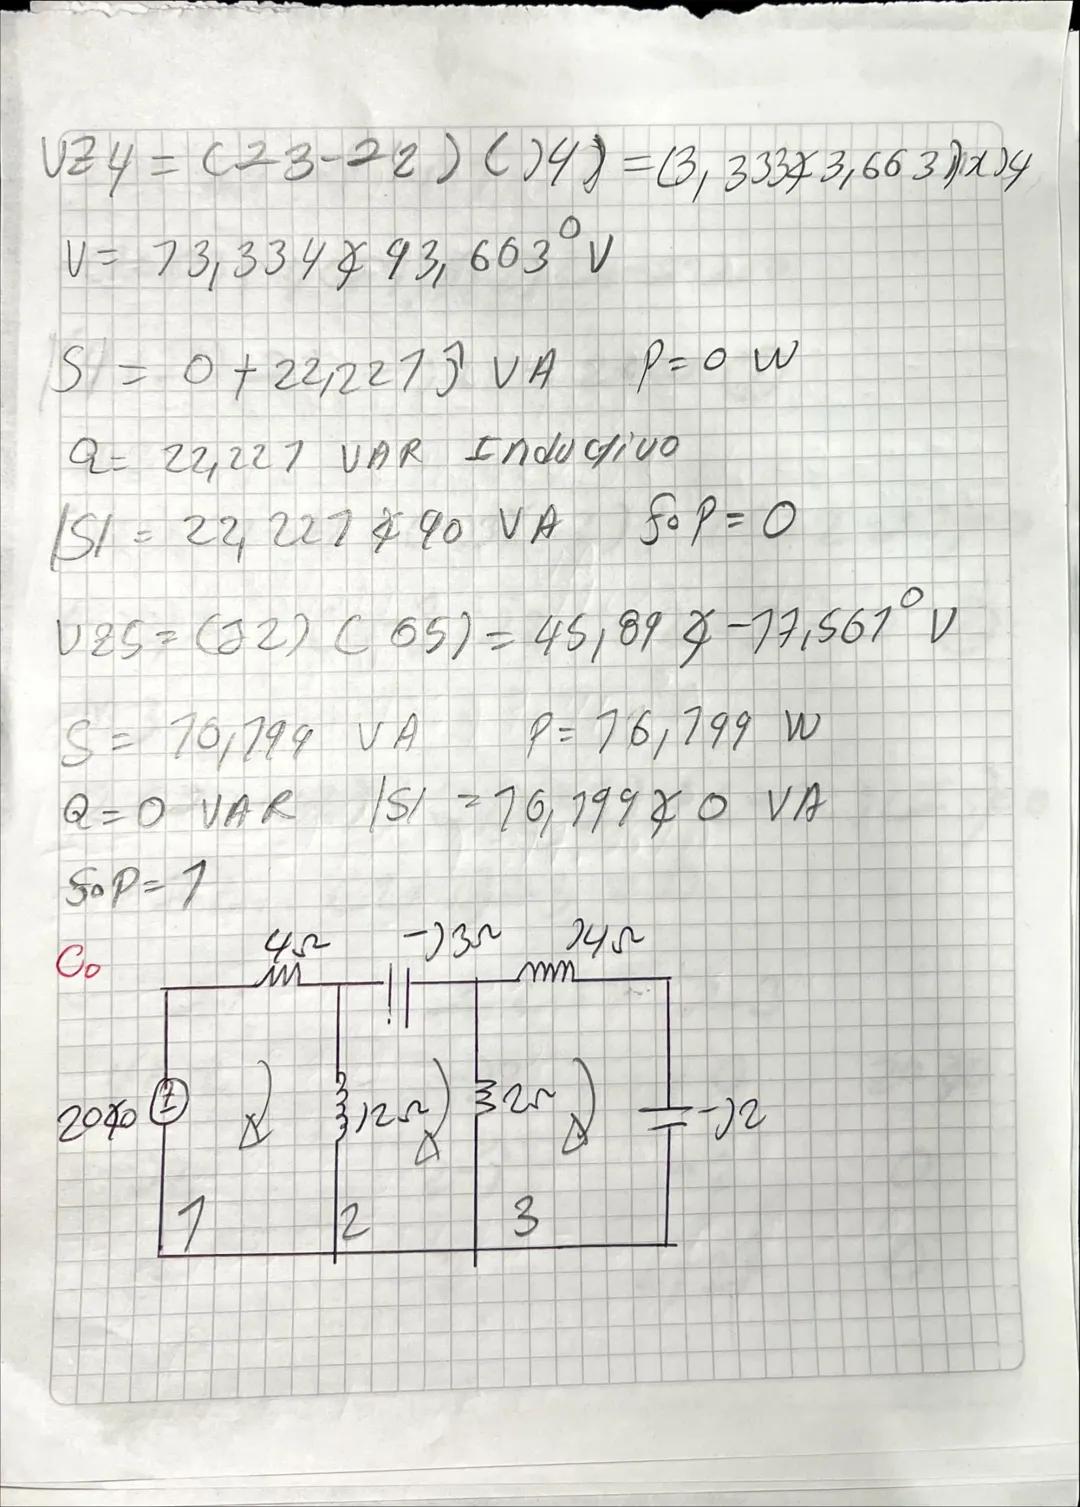 VZ4 = (I3-I2) (J4) = (3,333∠3,663) x J4
V= 13,334 ∠ 93,603° V
|S| = 0 + 22,221 j VA P= 0 W
Q= 22,221 VAR Inductivo
|S| = 22,221 ∠ 90 VA f.P = 0
VZ5 = (I2) (65) = 45,89 ∠ -17,561° V
S = 16,199 VA P= 16,199 W
Q=0 VAR |S| = 16,199 ∠ 0 VA
f.P = 1
C.
4Ω -J3Ω J4Ω
20∠0 J2Ω 2Ω -J2
1 2 3